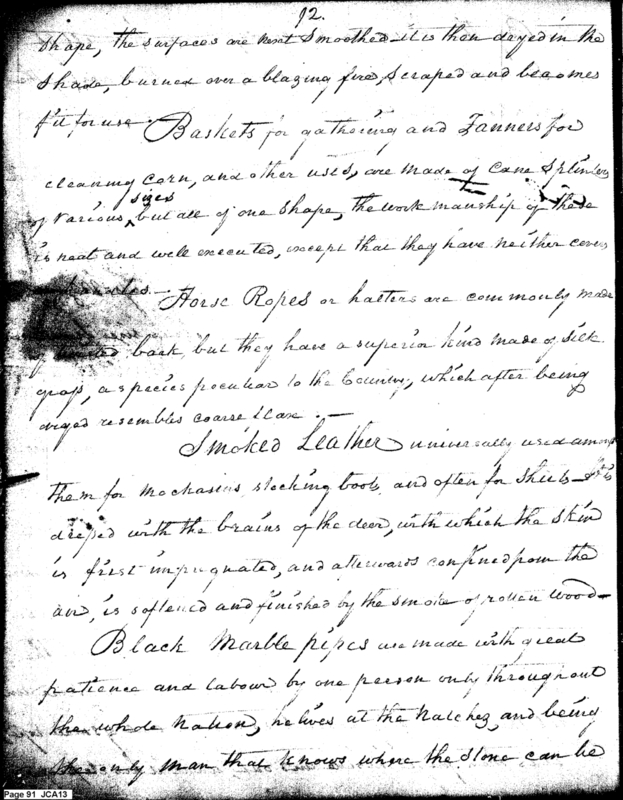 92.
Shape, the surfaces are next Smoothed - it is then dryed in the
Shade, burned over a blazing fire, Scraped and becomes
fit for use. -
Baskets for gathering and Fanners for
cleaning Corn, and other uses, are made of Cane Splinters
of various sizes, but all of one Shape, the workmanship of these
is neat and well executed, except that they have neither covers
- Horse Ropes or halters are commonly made
of back, but they have a superior kind made of Silk
grass, a species peculiar to the Country, which after being
dryed resembles coarse flax. -
Smoked Leather universally used among
them for Mockasins, stocking boots, and often for Shirts - it is
dressed with the brains of the deer, with which the Skin
is first impregnated, and afterwards confined from the
air, is softened and finished by the smoke of rotten wood -
Black Marble pipes are made with great
patience and labour by one person only throughout
the whole Nation, he lives at the Natchez, and being
the only man that knows where the Stone can be
Page 91 JCA13